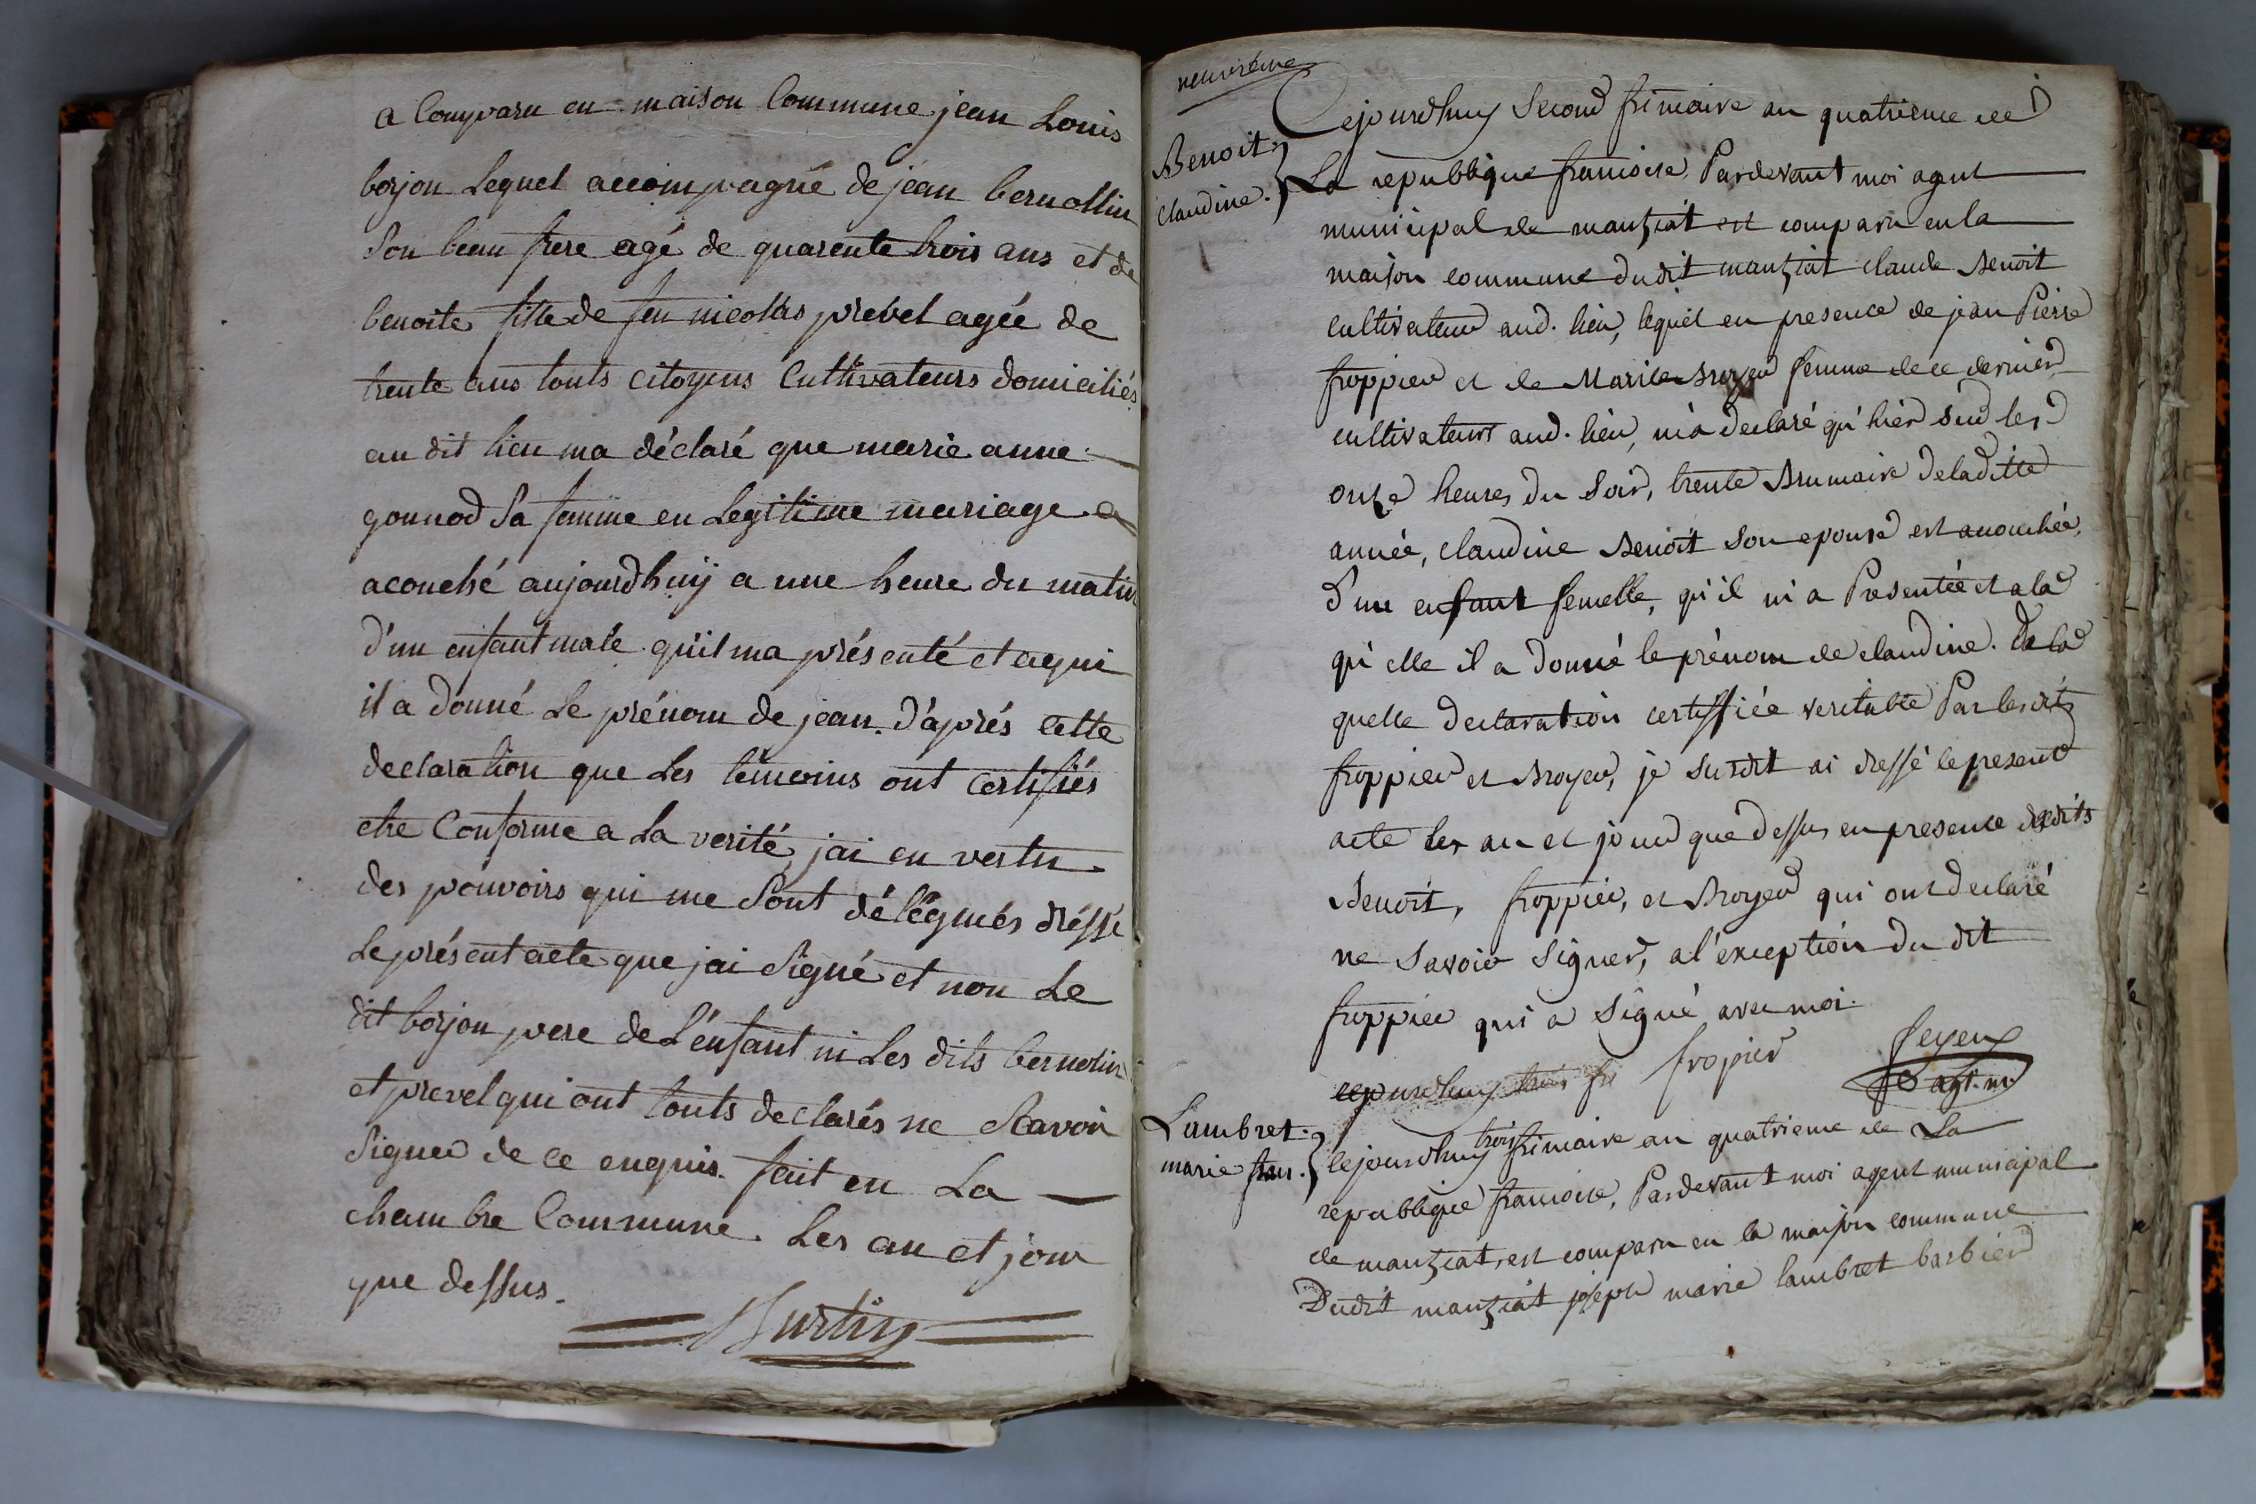 a Comparu en maison Commune jean Louis
borjon Lequel accompagné de jean bernollin
Son beau frere agé de quarente trois ans et de
benoite fille de feu nicolas prevel agée de
trente ans touts citoyens Cultivateurs domiciliés
au dit lieu ma déclaré que marie anne
gonnod Sa femme en Legitime mariage a
acouché aujourdhuÿ a une heure du matin
d'un enfant male qu'il ma présenté et aqui
il a donné Le prénom de jean. D'après cette
declaration que Les témoins ont certifiés
etre Conforme a La verité, jai en vertu
des pouvoirs qui me Sont délégués dréssé
Le présent acte que jai Signé et non Le
dit borjon pere de L'enfant ni Les dits bernolin
et prevel qui ont touts declarés ne Scavoir
Signer de ce enquis. fait en La
chambre Commune Les an et jour
que dessus.
neuvieme
Benoit.
claudine.
Cejourdhuy Second frimaire an quatrieme de
La republique francoise Pardevant moi agent
municipal de mantziat est comparu en la
maison commune dudit mantziat claude Benoit
cultivateur aud. lieu, lequel en presence de jean Pierre
froppier et de Marie Broyer femme de ce dernier
cultivateurs aud. lieu, m'a declaré qu'hier sur les
onze heures du Soir, trente Brumaire de laditte
année, claudine Benoit Son epouse est acouchée,
d'un enfant femelle, qu'il m'a Presentée et a la
qu'elle il a donné le prénom de claudine. De la
quelle declaration certiffiée veritable Par lesdits
froppier et Broyer, je Susdit ai dressé le present
acte les an et jour que dessus en presence desdits
Benoit, froppier, et Broyer qui ont declaré
ne Savoir Signer, a l'exception du dit
froppier qui a Signé avec moi.
fropier
feyeux
agt. m.
cejourdhuy trois fri
Lambret.
marie fran.
Cejourdhuy trois frimaire an quatrieme de La
republique francoise, Pardevant moi agent municipal
de mantziat, est comparu en la maison commune
Dudit mantziat joseph marie lambret barbier